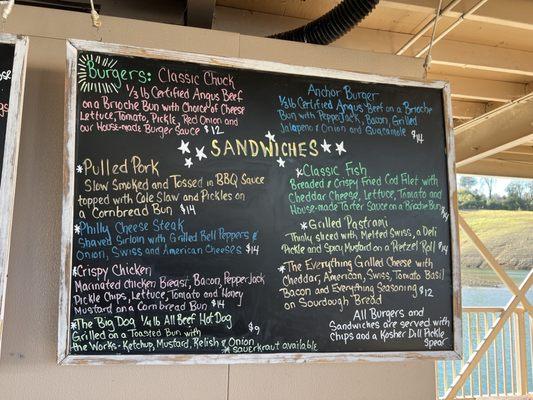 Burgers: Classic Chuck
1/3 lb Certified Angus Beef
on a Brioche Bun with Choice of Cheese
Lettuce, Tomato, Pickle, Red Onion and
our House-made Burger Sauce $12
Anchor Burger
1/3 lb Certified Angus Beef on a Brioche
Bun with PepperJack, Bacon, Grilled
Jalapeno & Onion and Guacamole $14
SANDWICHES
Pulled Pork
Slow Smoked and Tossed in BBQ Sauce
topped with Cole Slaw and Pickles on
a Cornbread Bun $14
Philly Cheese Steak
Shaved Sirloin with Grilled Bell Peppers &
Onion, Swiss and American Cheeses $14
Crispy Chicken
Marinated Chicken Breast, Bacon, PepperJack
Pickle Chips, Lettuce, Tomato and Honey
Mustard on a Cornbread Bun $14
The Big Dog 1/4 lb All Beef Hot Dog
Grilled on a Toasted Bun with $9
the Works - Ketchup, Mustard, Relish & Onion
sauerkraut available
Classic Fish
Breaded & Crispy Fried Cod Filet with
Cheddar Cheese, Lettuce, Tomato and
House-made Tarter Sauce on a Brioche Bun
Grilled Pastrami
Thinly sliced with Melted Swiss, a Deli
Pickle and Spicy Mustard on a Pretzel Roll $14
The Everything Grilled Cheese with
Cheddar, American, Swiss, Tomato Basil
Bacon and Everything Seasoning
on Sourdough Bread $12
All Burgers and
Sandwiches are served with
chips and a Kosher Dill Pickle
Spear